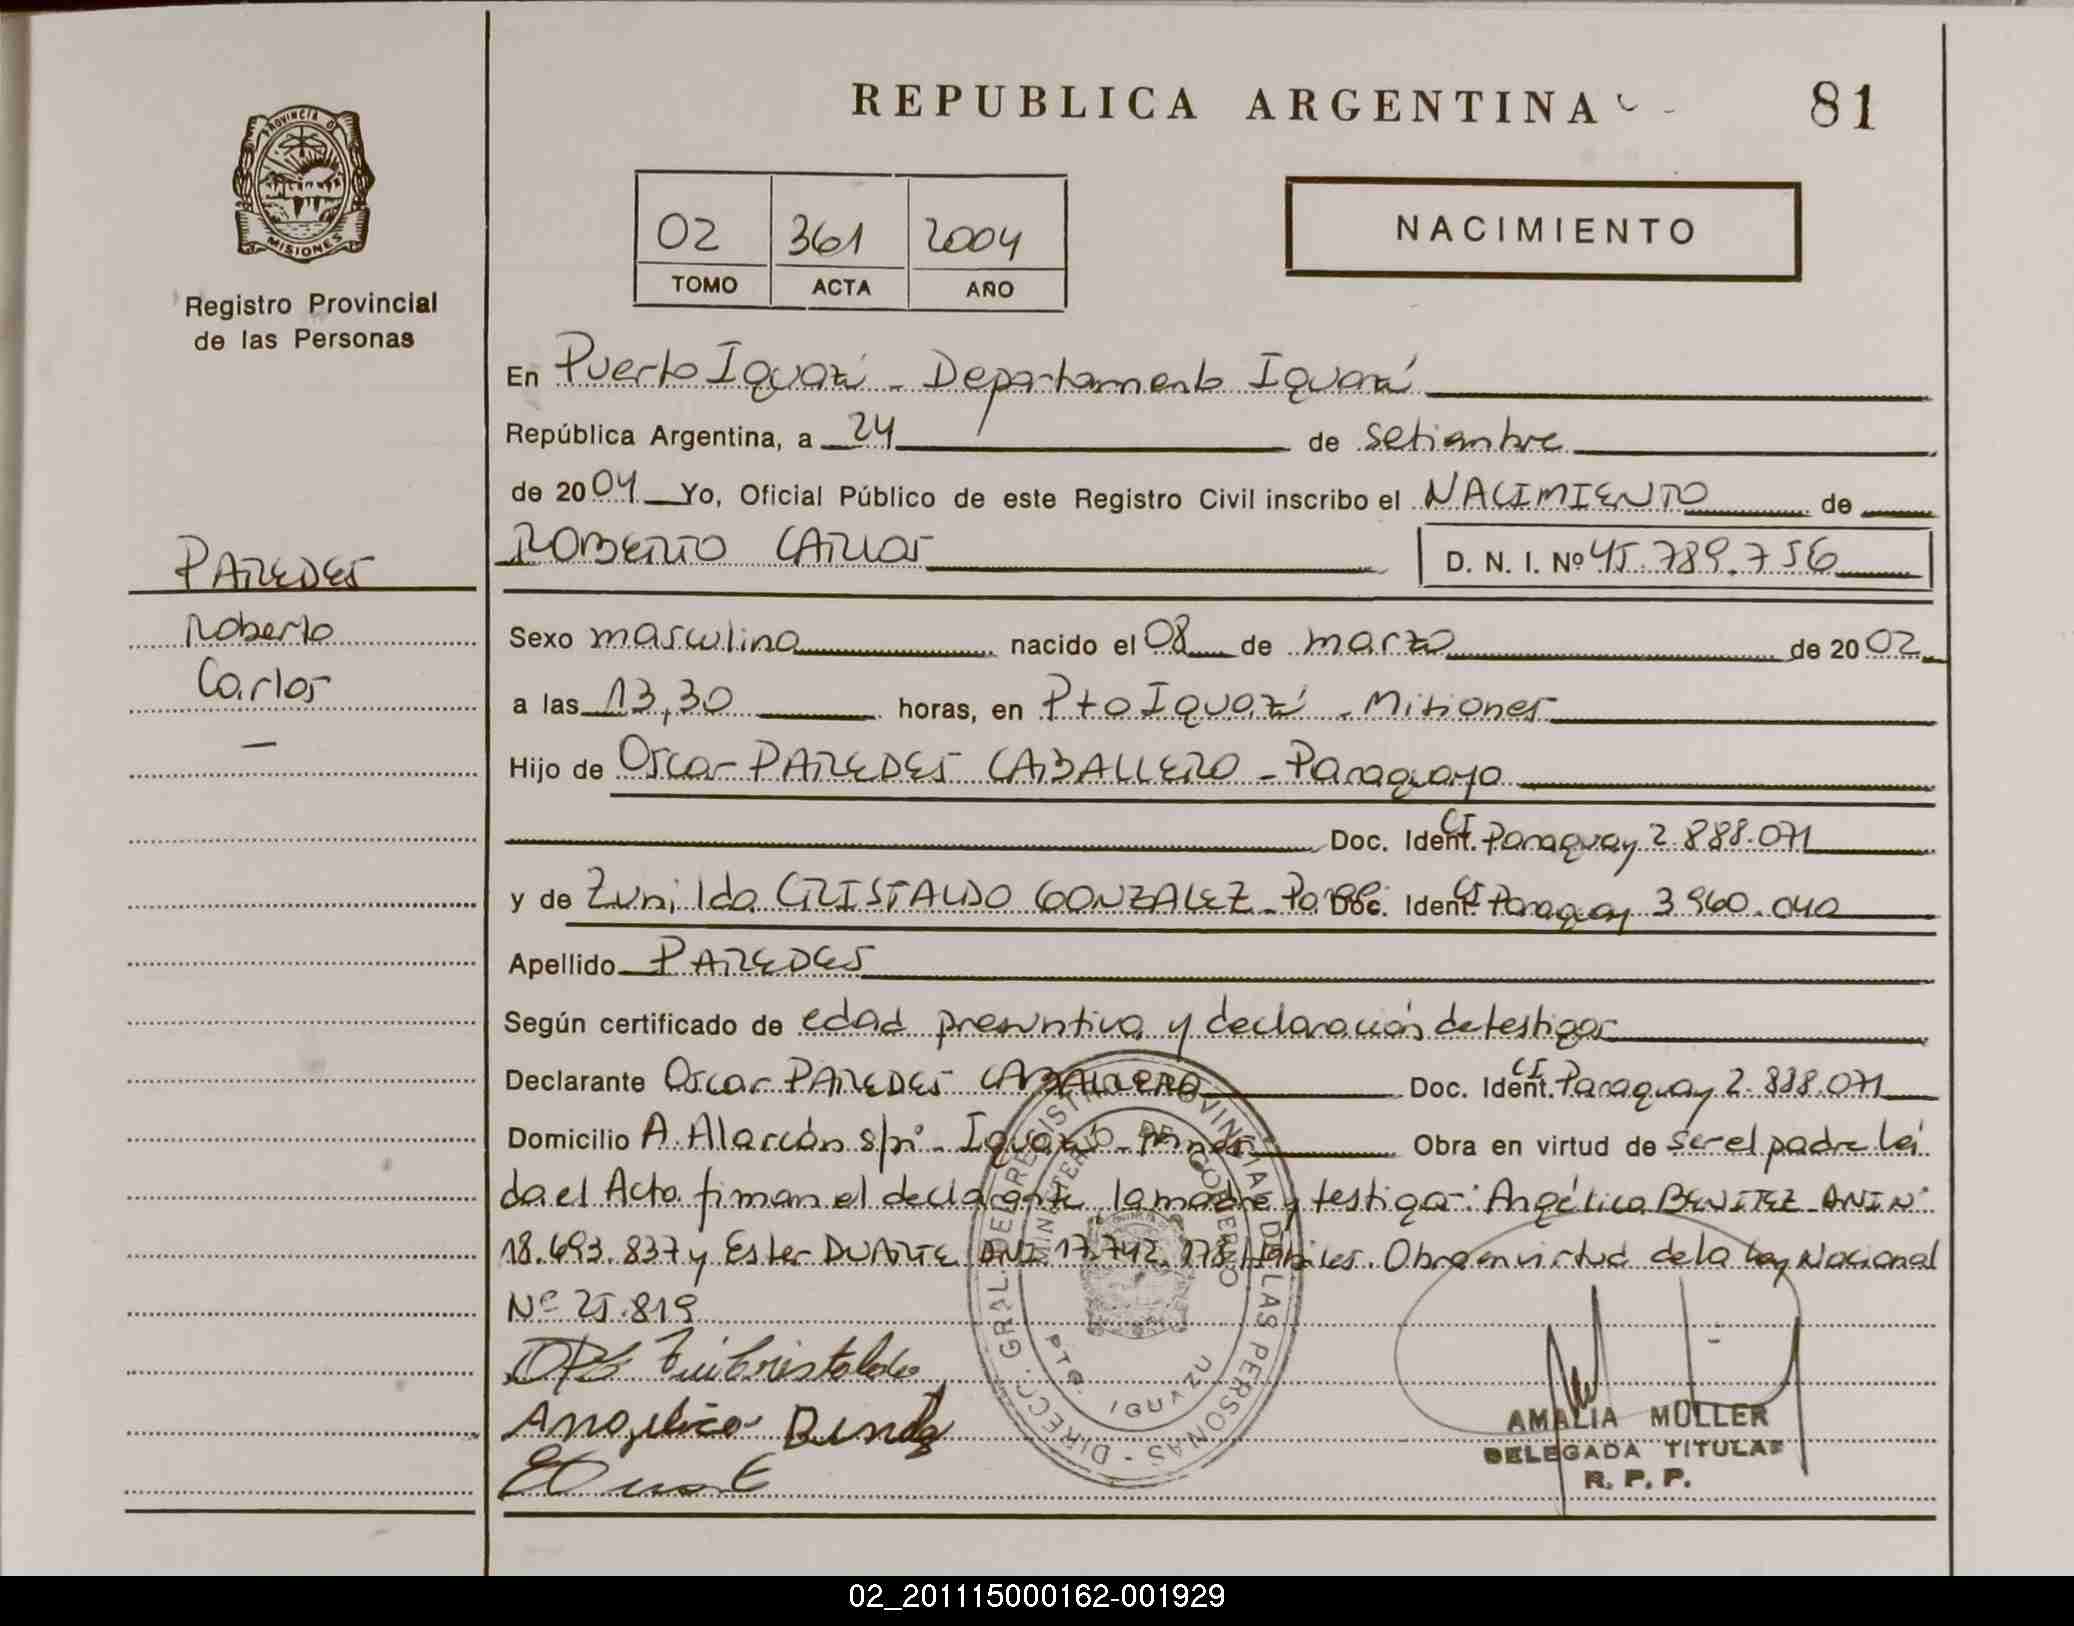 REPUBLICA ARGENTINA
81
PROVINCIA D
MISIONES
Registro Provincial
de las Personas
02 361 2004
TOMO ACTA AÑO
NACIMIENTO
En Puerto Iguazú - Departamento Iguazú
República Argentina, a 24 de setiembre
de 2004 Yo, Oficial Público de este Registro Civil inscribo el NACIMIENTO de
ROBERTO CARLOS D. N. I. Nº 45.789.756
PAREDES
Roberto
Carlos
Sexo masculino nacido el 08 de marzo de 2002
a las 13,30 horas, en Pto Iguazú - Misiones
Hijo de Oscar PAREDES CABALLERO - Paraguayo
Doc. Ident. CI Paraguay 2.888.071
y de Zunilda CRISTALDO GONZALEZ - Parag. Doc. Ident. CI Paraguay 3960.040
Apellido PAREDES
Según certificado de edad presuntiva y declaración de testigos
Declarante Oscar PAREDES CABALLERO Doc. Ident. CI Paraguay 2.888.071
Domicilio A. Alarcón s/nº - Iguazú - Mnes Obra en virtud de ser el padre leí
da el Acta firman el declarante, la madre y testigos: Angélica BENITEZ DNI Nº
18.693.837 y Ester DUARTE DNI 17.742.178 Hábiles. Obra en virtud de la Ley Nacional
Nº 25.819
DIRECC. GRAL. DEL REGISTRO PROVINCIAL DE LAS PERSONAS
MINISTERIO DE GOBIERNO
PTO. IGUAZU
AMALIA MULLER
DELEGADA TITULAR
R. P. P.
02_201115000162-001929